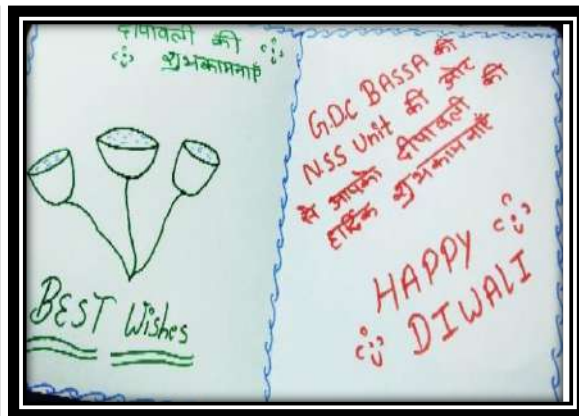 दीपावली की
शुभकामनाएँ
BEST Wishes
GDC BASSA की
NSS Unit की ओर
से आपको दीपावली की
हार्दिक शुभकामनाएँ
HAPPY
DIWALI